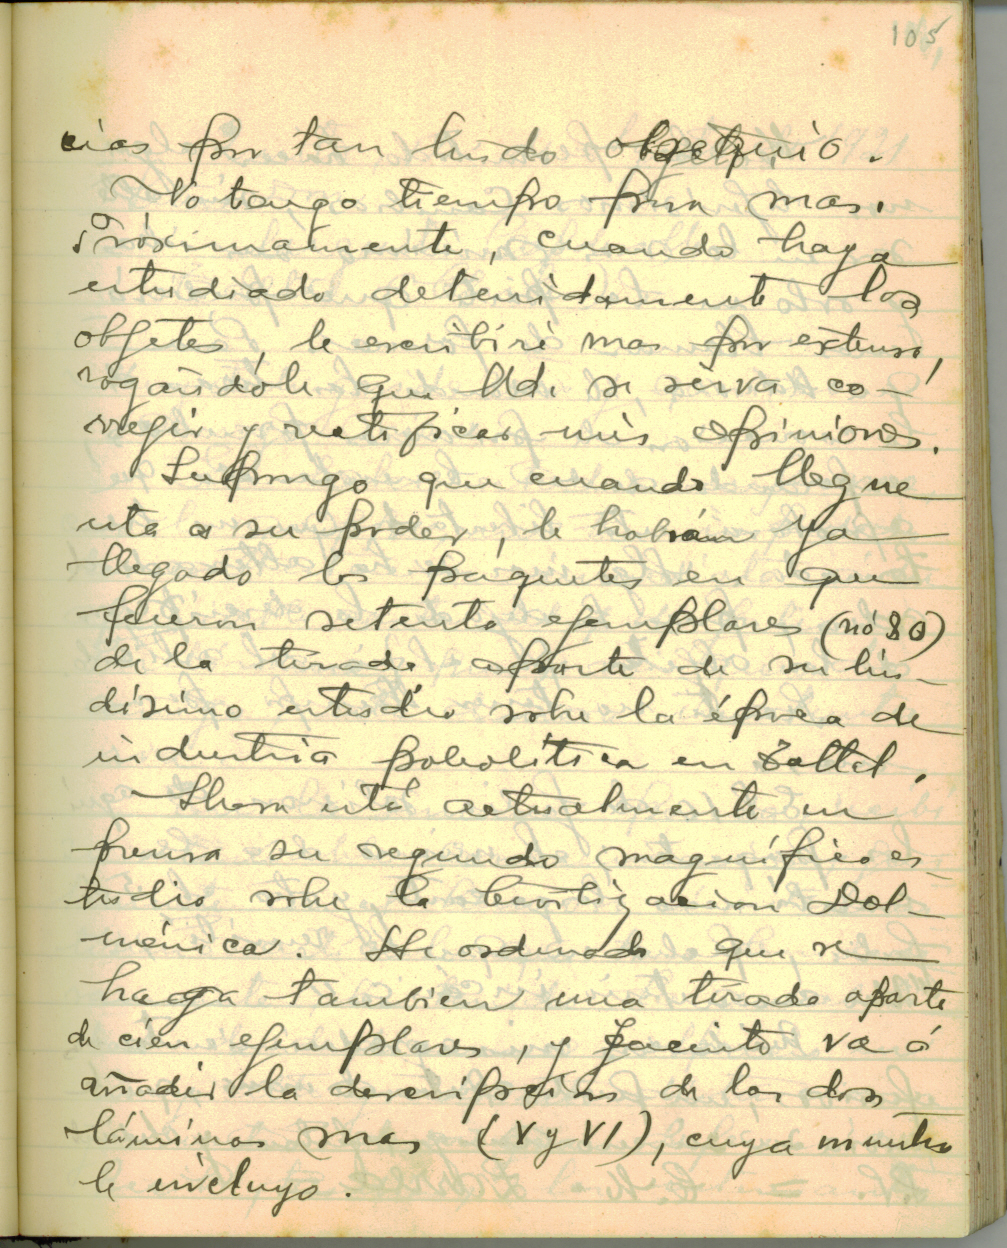 105
cias por tan lindo obsequio.
No tango tiempo para mas.
Próximamente, cuando haya
estudiado detenidamente los
objetos, le escribiré mas por extenso,
rogandole que Ud. se serva co-
rregir y rectificar mis opiniones.
Supongo que cuando llegue
esta a su poder, le habrán ya
llegado los paquetes en que
fueron setenta ejemplares (nó 80)
de la tirada aparte de su lin-
dísimo estudio sobre la época de
industria paleolitica en
Ahora está actualmente en
prensa su segundo magnífico es-
tudio sobre la Civilizacion Dol-
ménica. He ordenado que se
haga tambien una tirada aparte
de cien ejemplares, y Jacinto va á
añadir la descripcion de las dos
láminas mas (V y VI), cuya muestra
le incluyo.